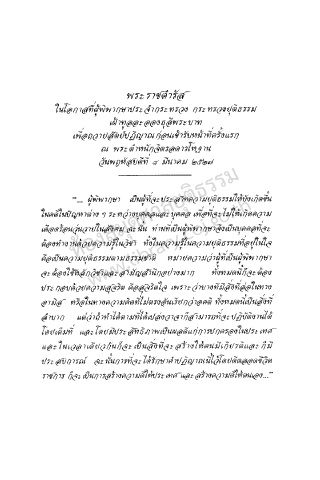 พระราชดำรัส
ในโอกาสที่ผู้พิพากษาประจำกระทรวง กระทรวงยุติธรรม
เฝ้าทูลละอองธุลีพระบาท
เพื่อถวายสัตย์ปฏิญาณก่อนเข้ารับหน้าที่ครั้งแรก
ณ พระตำหนักจิตรลดารโหฐาน
วันพฤหัสบดีที่ ๘ มีนาคม ๒๕๒๗
"... ผู้พิพากษา เป็นผู้ที่จะประสาทความยุติธรรมให้บังเกิดขึ้น
ในคดีในปัญหาต่าง ๆ ระหว่างบุคคลและบุคคล เพื่อที่จะไม่ให้เกิดความ
เดือดร้อนวุ่นวายในสังคม ฉะนั้น ท่านที่เป็นผู้พิพากษาจึงเป็นบุคคลที่จะ
ต้องทำงานด้วยความรู้ในวิชา ทั้งในความรู้ในความยุติธรรมที่อยู่ในใจ
คือเป็นความยุติธรรมตามธรรมชาติ หมายความว่าผู้ที่เป็นผู้พิพากษา
จะต้องใช้หลักวิชาและสามัญสำนึกอย่างมาก ทั้งหมดนี้ก็จะต้อง
ประกอบด้วยความสุจริต คือสุจริตใจ เพราะว่าบางทีมีสิ่งที่ล่อในทาง
อามิส หรือในทางความคิดที่ไม่ตรงอันเรียกว่าอคติ ทั้งหมดนี้เป็นสิ่งที่
ลำบาก แต่ว่าถ้าทำได้ตามที่ได้เปล่งวาจาก็สามารถที่จะปฏิบัติงานได้
โดยเต็มที่ และโดยมีประสิทธิภาพเป็นผลดีแก่การปกครองในประเทศ
และในเวลาเดียวกันก็จะเป็นสิ่งที่จะสร้างให้ตนมีเกียรติและก็มี
ประสบการณ์ ฉะนั้นการที่จะได้รักษาคำปฏิญาณนี้ไว้โดยตลอดชีวิต
ราชการ ก็จะเป็นการสร้างความดีให้ประเทศและสร้างความดีให้ตนเอง..."